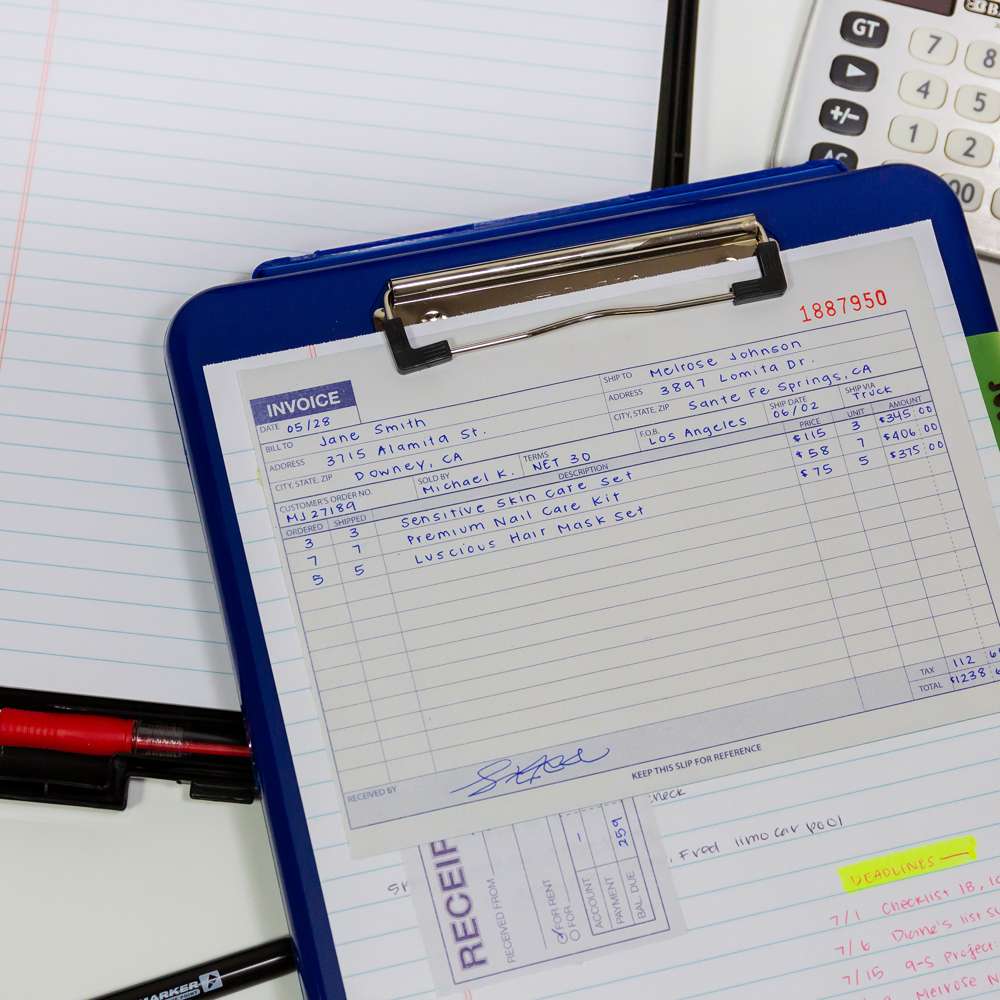 GT
7
8
4
5
+/-
1
2
AC
00
1887950
INVOICE
DATE 05/28
BILL TO Jane Smith
ADDRESS 3715 Alamita St.
CITY, STATE, ZIP Downey, CA
SHIP TO Melrose Johnson
ADDRESS 3897 Lomita Dr.
CITY, STATE, ZIP Sante Fe Springs, CA
CUSTOMER'S ORDER NO. MJ27189
SOLD BY Michael K.
TERMS NET 30
F.O.B. Los Angeles
SHIP DATE 06/02
SHIP VIA Truck
ORDERED SHIPPED DESCRIPTION PRICE UNIT AMOUNT
3 3 Sensitive Skin Care Set $115 3 $345 00
7 7 Premium Nail Care Kit $58 7 $406 00
5 5 Luscious Hair Mask Set $75 5 $375 00
TAX 112
TOTAL $1238
RECEIVED BY
KEEP THIS SLIP FOR REFERENCE
RECEIP
RECEIVED FROM
FOR RENT
FOR
ACCOUNT -
PAYMENT 259
BAL. DUE
Fred limo car pool
DEADLINES
7/1 Checklist 1B,
7/6 Diane's list
7/15 9-5 Project
Melrose
MARKER